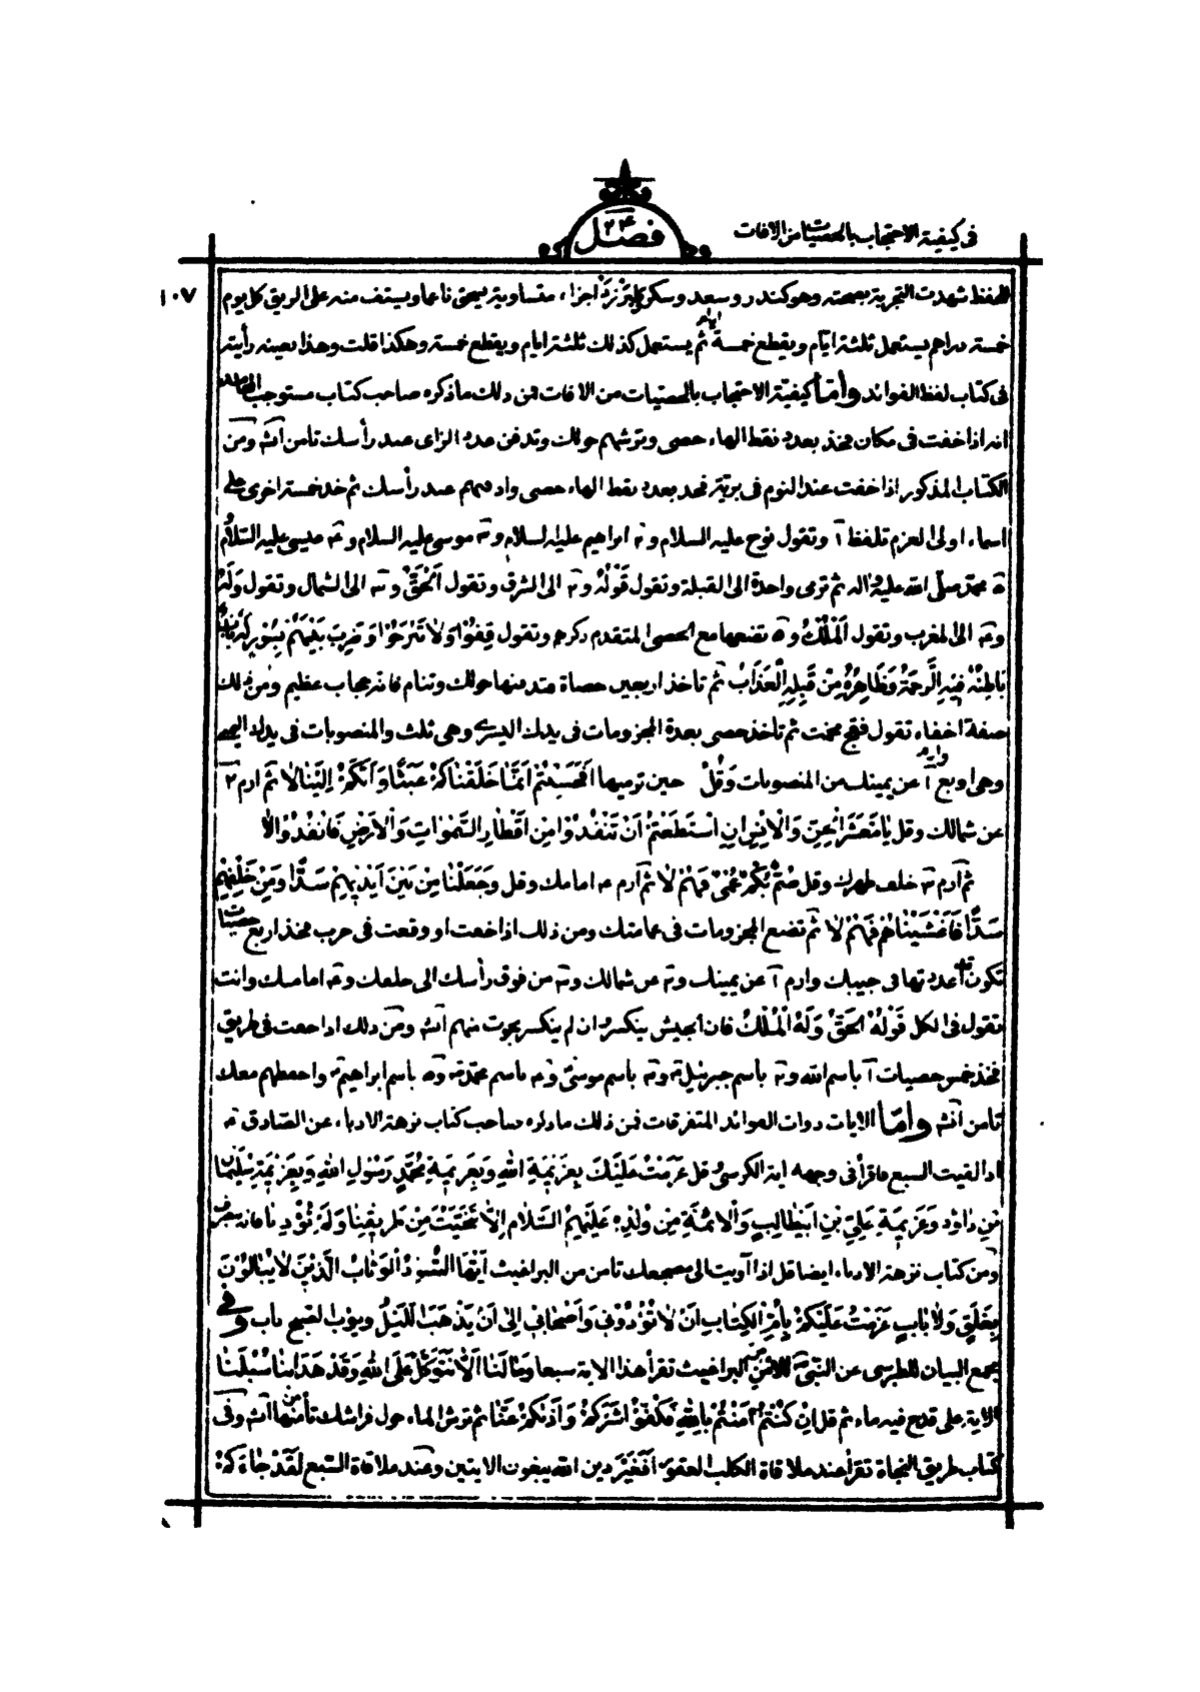 فى كيفية الاحتجاب بالحصيات من الافات
فصل ٢٤
١٠٧
للحفظ شهدت التجربة بصحته وهو كندر وسعد وسكر طبرزد اجزاء متساوية يسحق ناعما ويستف منه على الريق كل يوم
خمسة دراهم يستعمل ثلثة ايّام ويقطع خمسة ايام ثم يستعمل كذلك ثلثة ايام ويقطع خمسة وهكذا قلت وهذا بعينه رأيته
فى كتاب لفظ الفوائد وأمّا كيفيّة الاحتجاب بالحصيات من الافات فمن ذلك ما ذكره صاحب كتاب مستوجب المحامد
انه اذا خفت فى مكان فخذ بعدد نقط الهاء حصى وترشهم حولك وتدفن عدد الزاى عند رأسك تأمن انش ومن
الكتاب المذكور اذا خفت عند النوم فى برية فخذ بعدد نقط الهاء حصى وادفنهم عند رأسك ثم خذ خمسة اخرى على
اسماء اولى العزم تلفظ آ وتقول نوح عليه السلام و٢ ابراهيم عليه السلام و٣ موسى عليه السلام و٤ عيسى عليه السّلام
٥ محمّد صلّى الله عليه واله ثم ترمى واحدة الى القبلة وتقول قَوْلُهُ و٢ الى الشرق وتقول اَلْحَقُّ و٣ الى الشمال وتقول وَلَهُ
و٤ الى المغرب وتقول اَلْمُلْكُ و٥ تضعها مع الحصى المتقدم ذكرهم وتقول قِفُوا وَلا تَبْرَحُوا وَضُرِبَ بَيْنَهُمْ بِسُورٍ لَهُ بابٌ
باطِنُهُ فيهِ الرَّحْمَةُ وَظاهِرُهُ مِنْ قِبَلِهِ الْعَذابُ ثم تأخذ اربعين حصاة عند منامها حولك وتنام فانه حجاب عظيم ومن ذلك
صفة اخفاء تقول فقج مخمت ثم تأخذ حصى بعدة المجزومات فى يدك اليسرى وهى ثلث والمنصوبات فى يدك اليمنى
وهى اربع وارم آ عن يمينك من المنصوبات وَقُلْ حين ترميها اَفَحَسِبْتُمْ اَنَّما خَلَقْناكُمْ عَبَثًا وَاَنَّكُمْ اِلَيْنا لا ثم ارم ٢
عن شمالك وقل يا مَعْشَرَ الْجِنِّ وَالْاِنْسِ اِنِ اسْتَطَعْتُمْ اَنْ تَنْفُذُوا مِنْ اَقْطارِ السَّمٰواتِ وَالْاَرْضِ فَانْفُذُوا لا
ثم ارم ٣ خلف ظهرك وقل صُمٌّ بُكْمٌ عُمْىٌ فَهُمْ لا ثم ارم ٤ امامك وقل وَجَعَلْنا مِنْ بَيْنِ اَيْديهِمْ سَدًّا وَمِنْ خَلْفِهِمْ
سَدًّا فَاَغْشَيْناهُمْ فَهُمْ لا ثم تضع المجزومات فى عمامتك ومن ذلك اذا خفت او وقعت فى حرب فخذ اربع حصيات
تكون قد اعددتها فى جيبك وارم آ عن يمينك و٢ عن شمالك و٣ من فوق رأسك الى خلفك و٤ امامك وانت
تقول فى الكل قَوْلُهُ الْحَقُّ وَلَهُ الْمُلْكُ فان الجيش ينكسر وان لم ينكسر نجوت منهم انش ومن ذلك اذا خفت فى طريق
فخذ خمس حصيات آ باسم الله و٢ باسم جبرئيل و٣ باسم موسى و٤ باسم محمّد و٥ باسم ابراهيم واحفظهم معك
تأمن انش وأمّا الايات ذوات الفوائد المتفرقات فمن ذلك ما ذكره صاحب كتاب نزهة الادباء عن الصّادق ع
اذا لقيت السبع فاقرأ فى وجهه اية الكرسى وقل عَزَمْتُ عَلَيْكَ بِعَزيمَةِ اللهِ وَبِعَزيمَةِ مُحَمَّدٍ رَسُولِ اللهِ وَبِعَزيمَةِ سُلَيْمانَ
بْنِ داوُدَ وَعَزيمَةِ عَلِىِّ بْنِ اَبيطالِبٍ وَالْاَئِمَّةِ مِنْ وُلْدِهِ عَلَيْهِمُ السَّلامُ اِلّا تَنَحَّيْتَ مِنْ طَريقِنا وَلَمْ تُؤْذِنا فانه ينصرف
ومن كتاب نزهة الادباء ايضا قل اذا آويت الى مضجعك تأمن من البراغيث اَيُّهَا الْاَسْوَدُ الْوَثّابُ الَّذى لا يُبالى
بِغَلَقٍ وَلا بابٍ عَزَمْتُ عَلَيْكُمْ بِاُمِّ الْكِتابِ اَنْ لا تُؤْذُونى وَاَصْحابى اِلى اَنْ يَذْهَبَ اللَّيْلُ ويؤب الصبح باب وفى
مجمع البيان للطبرسى عن النّبى للامن من البراغيث تقرأ هذا الاية سبعا وَما لَنا اَلّا نَتَوَكَّلَ عَلَى اللهِ وَقَدْ هَدانا سُبُلَنا
الاية على قدح فيه ماء ثم قل اِنْ كُنْتُمْ آمَنْتُمْ بِاللهِ فَكُفُّوا شَرَّكُمْ وَاَذاكُمْ عَنّا ثم ترش الماء حول فراشك تأمن منها انش وفى
كتاب طريق النجاة تقرأ عند ملاقاة الكلب العقور اَفَغَيْرَ دين الله يبغون الايتين وعند ملاقاة السّبع لَقَدْ جاءَكُمْ